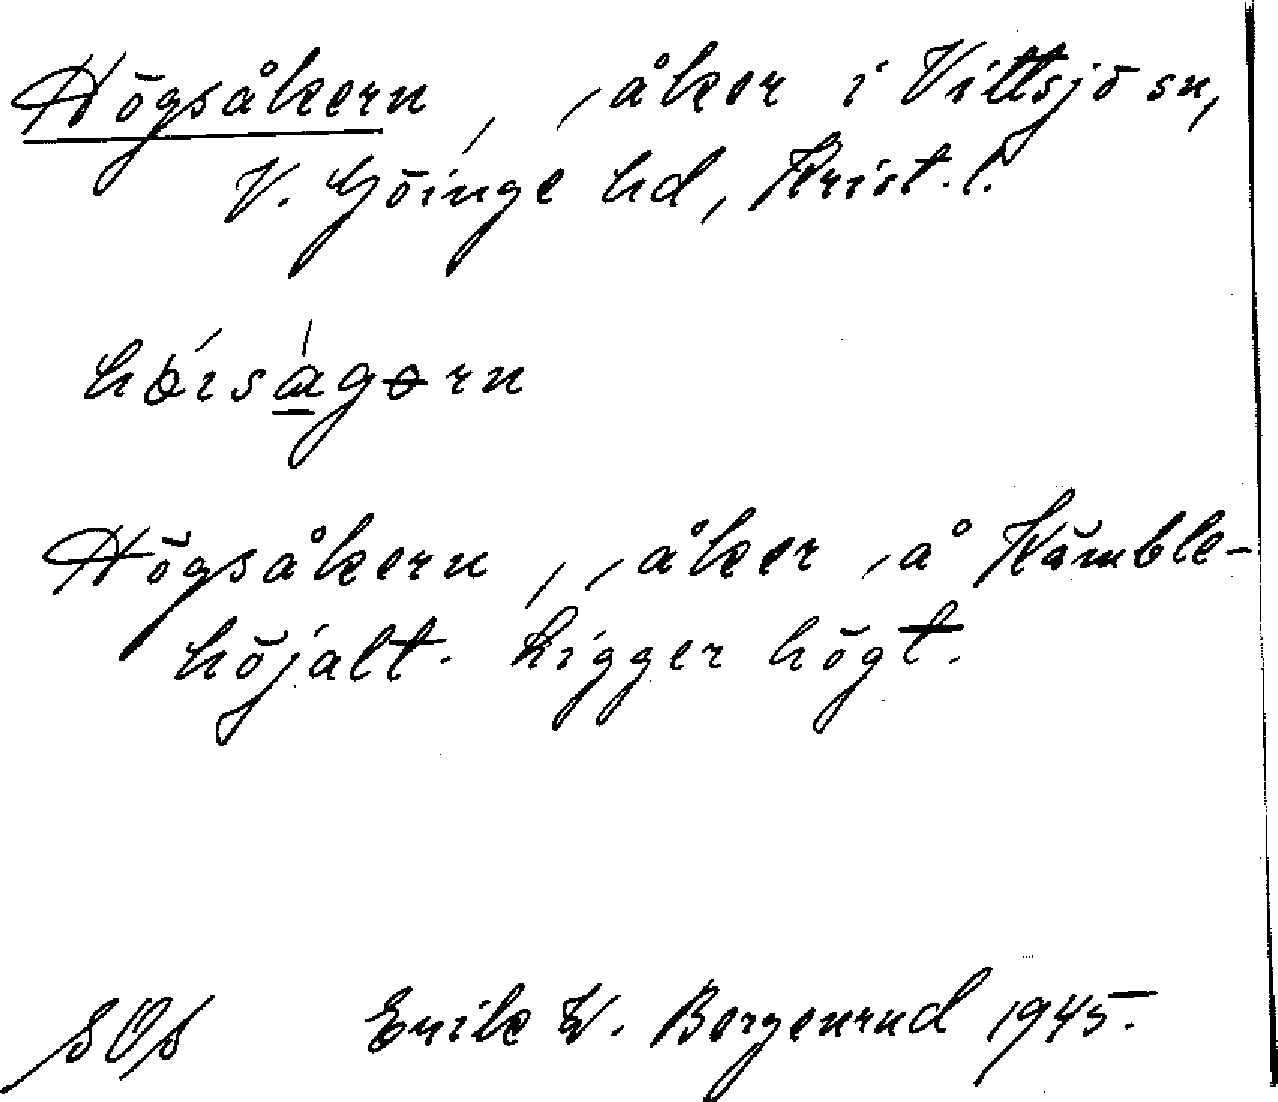 Högsåkern, åker i Vittsjö sn,
V. Göinge hd, Krist. l.
hö́isàgərn
Högsåkern, åker å Kämble-
höjalt. Ligger högt.
Erik W. Bergenrud 1945.